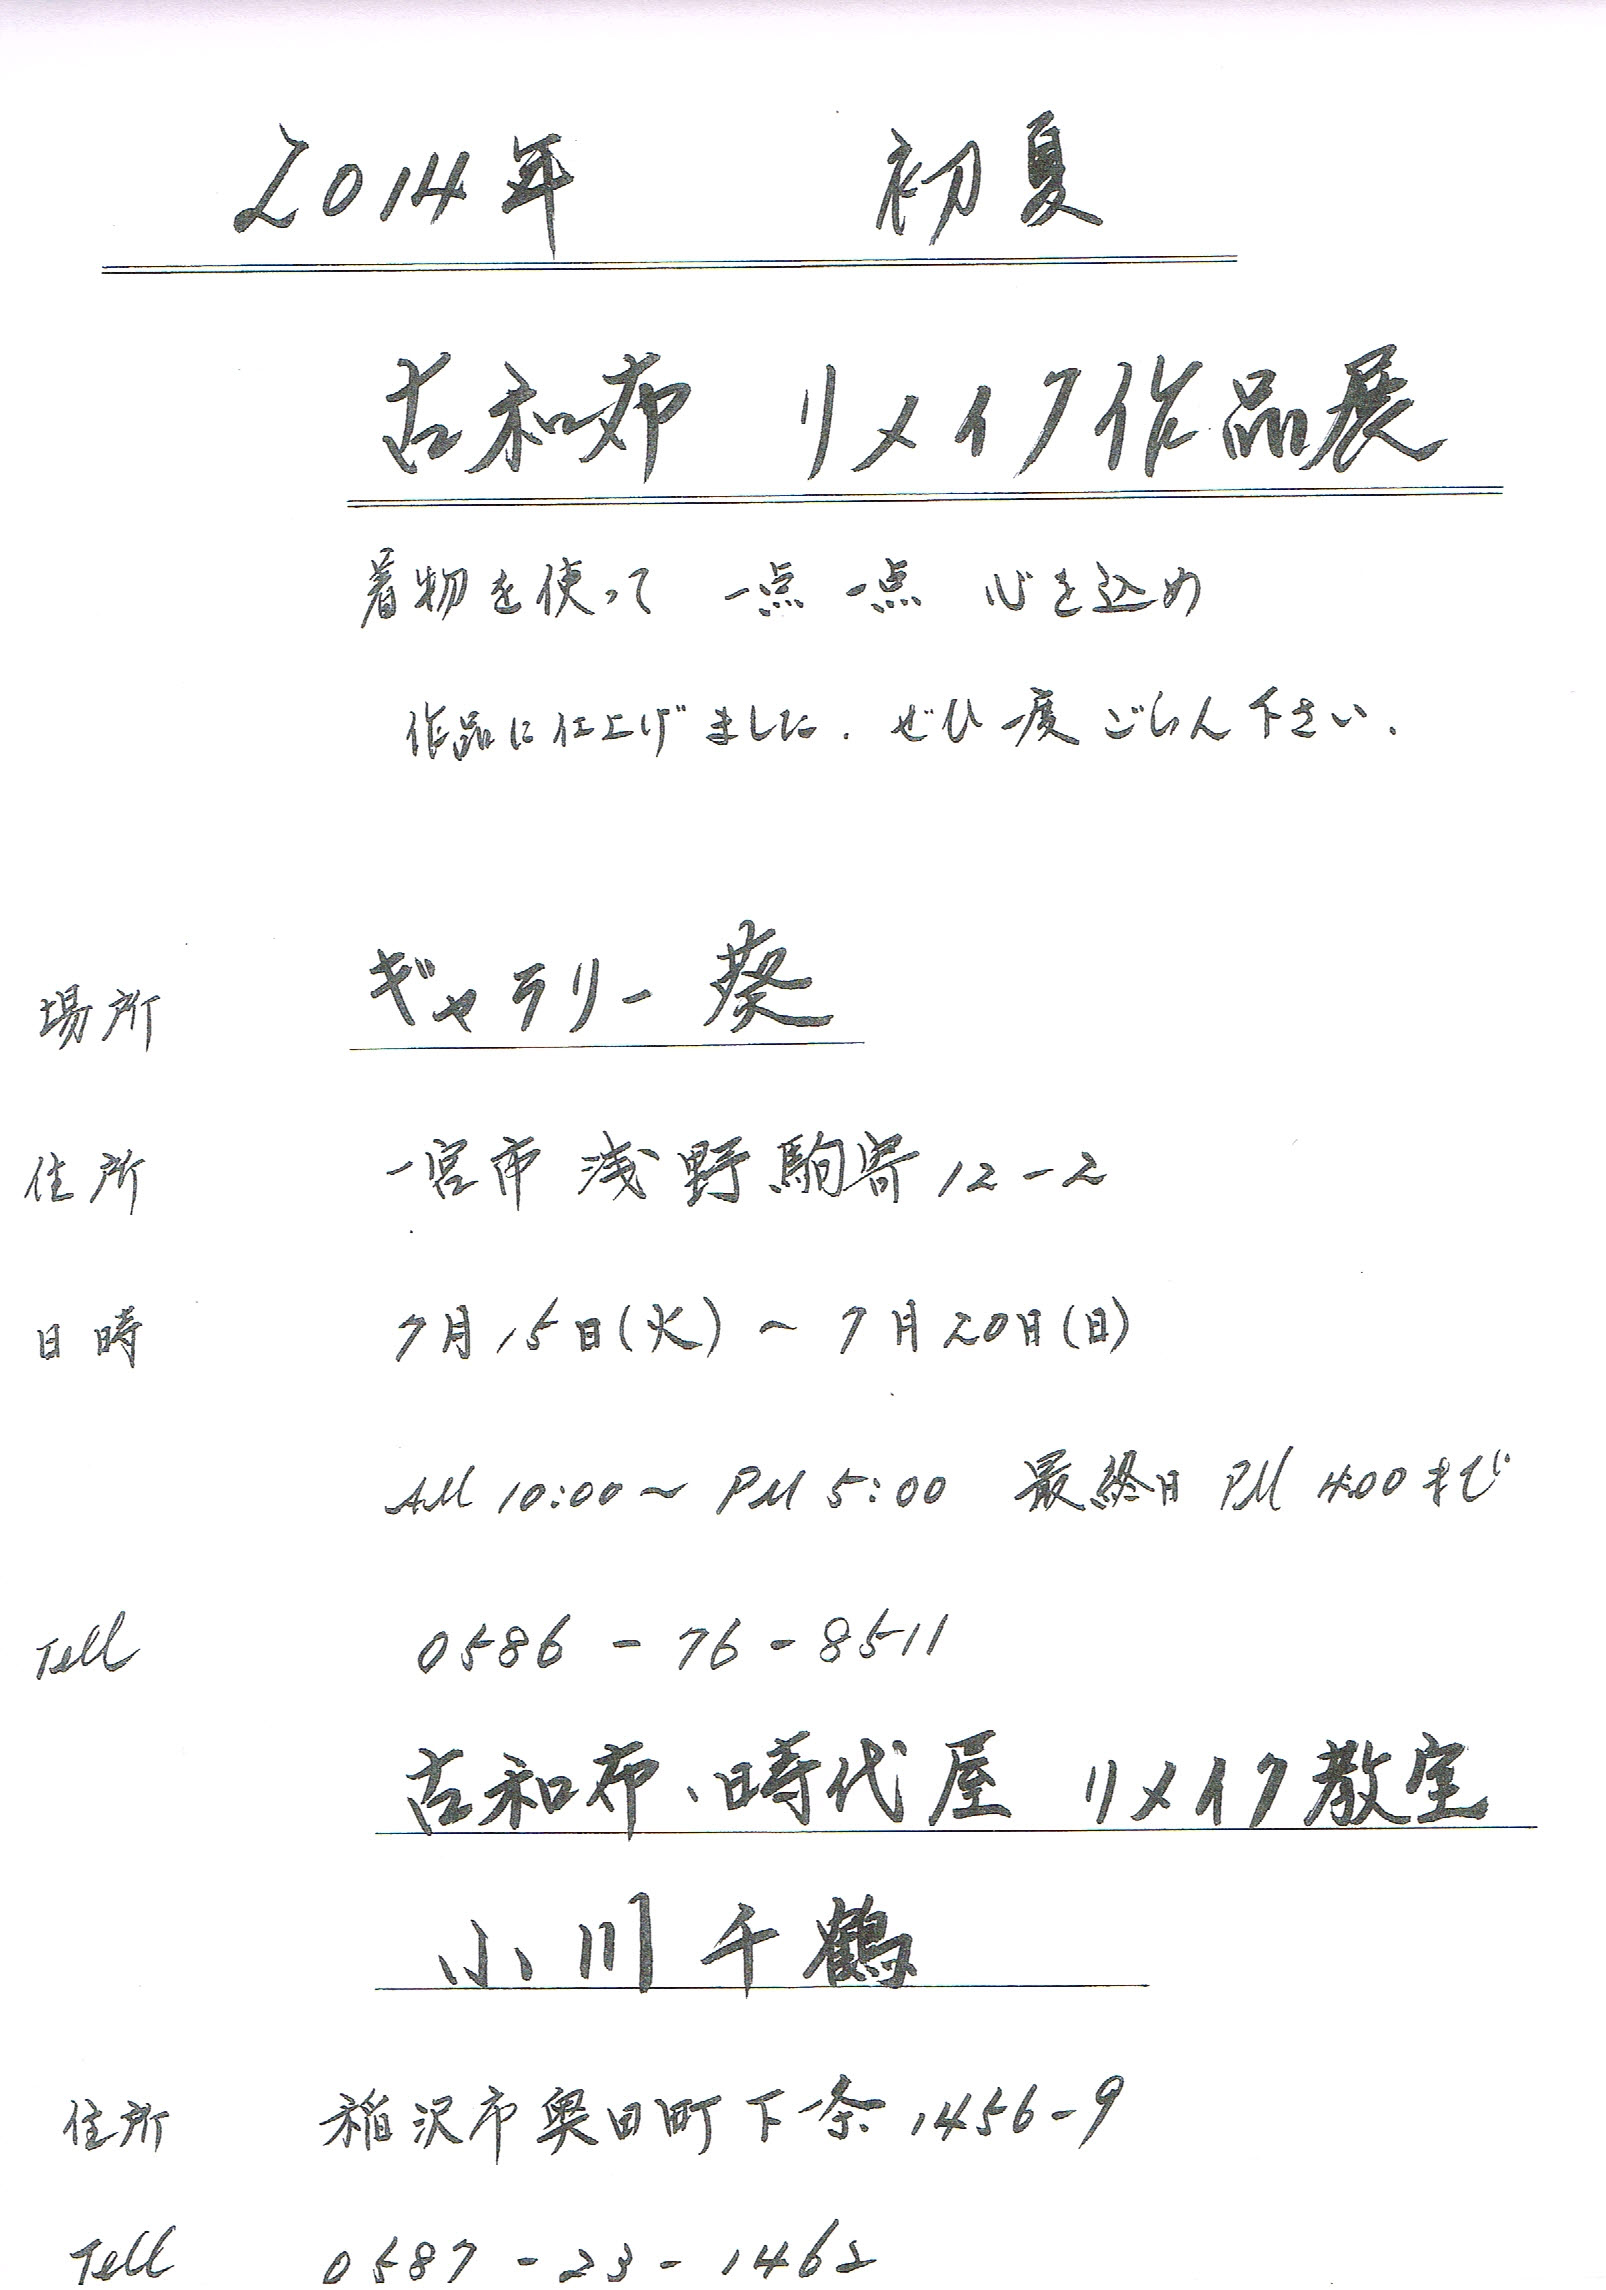 2014年 初夏
古和布 リメイク作品展
着物を使って 一点一点 心を込め
作品に仕上げました. ぜひ一度ごらん下さい.
場所 ギャラリー葵
住所 一宮市浅野駒寄12-2
日時 7月15日(火)~7月20日(日)
AM 10:00~PM 5:00 最終日 PM 4:00まで
Tell 0586-76-8511
古和布、時代屋 リメイク教室
小川千鶴
住所 稲沢市奥田町下一条1456-9
Tell 0587-23-1462